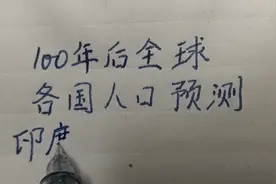 100年后全球
各国人口预测
印度